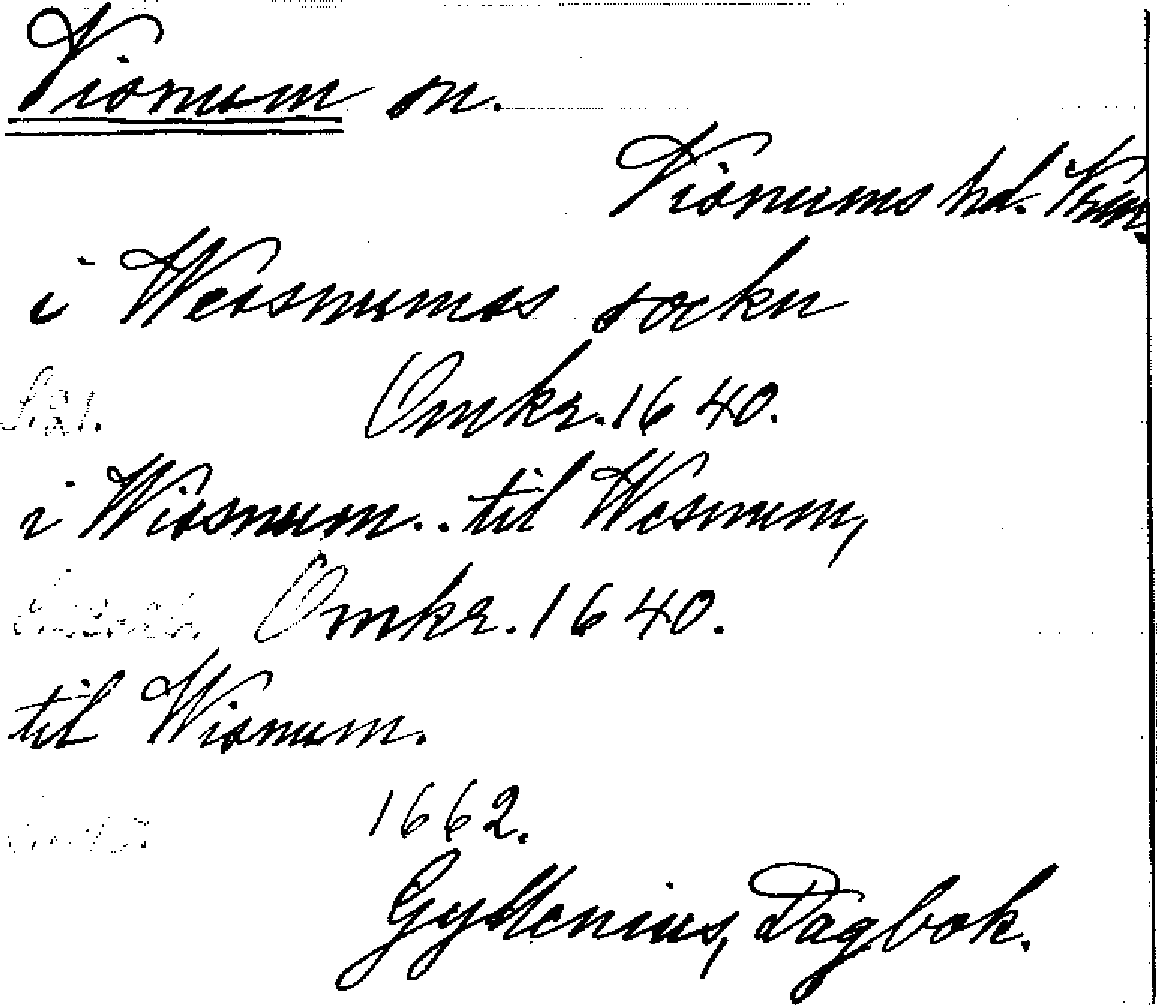 Visnum sn.
Visnums hd. Vrm.
i Weisnumss sockn
S. 81. Omkr. 1640.
i Wissnum.. til Wesnum,
Omkr. 1640.
til Wisnum.
1662.
Gyllenius, Dagbok.